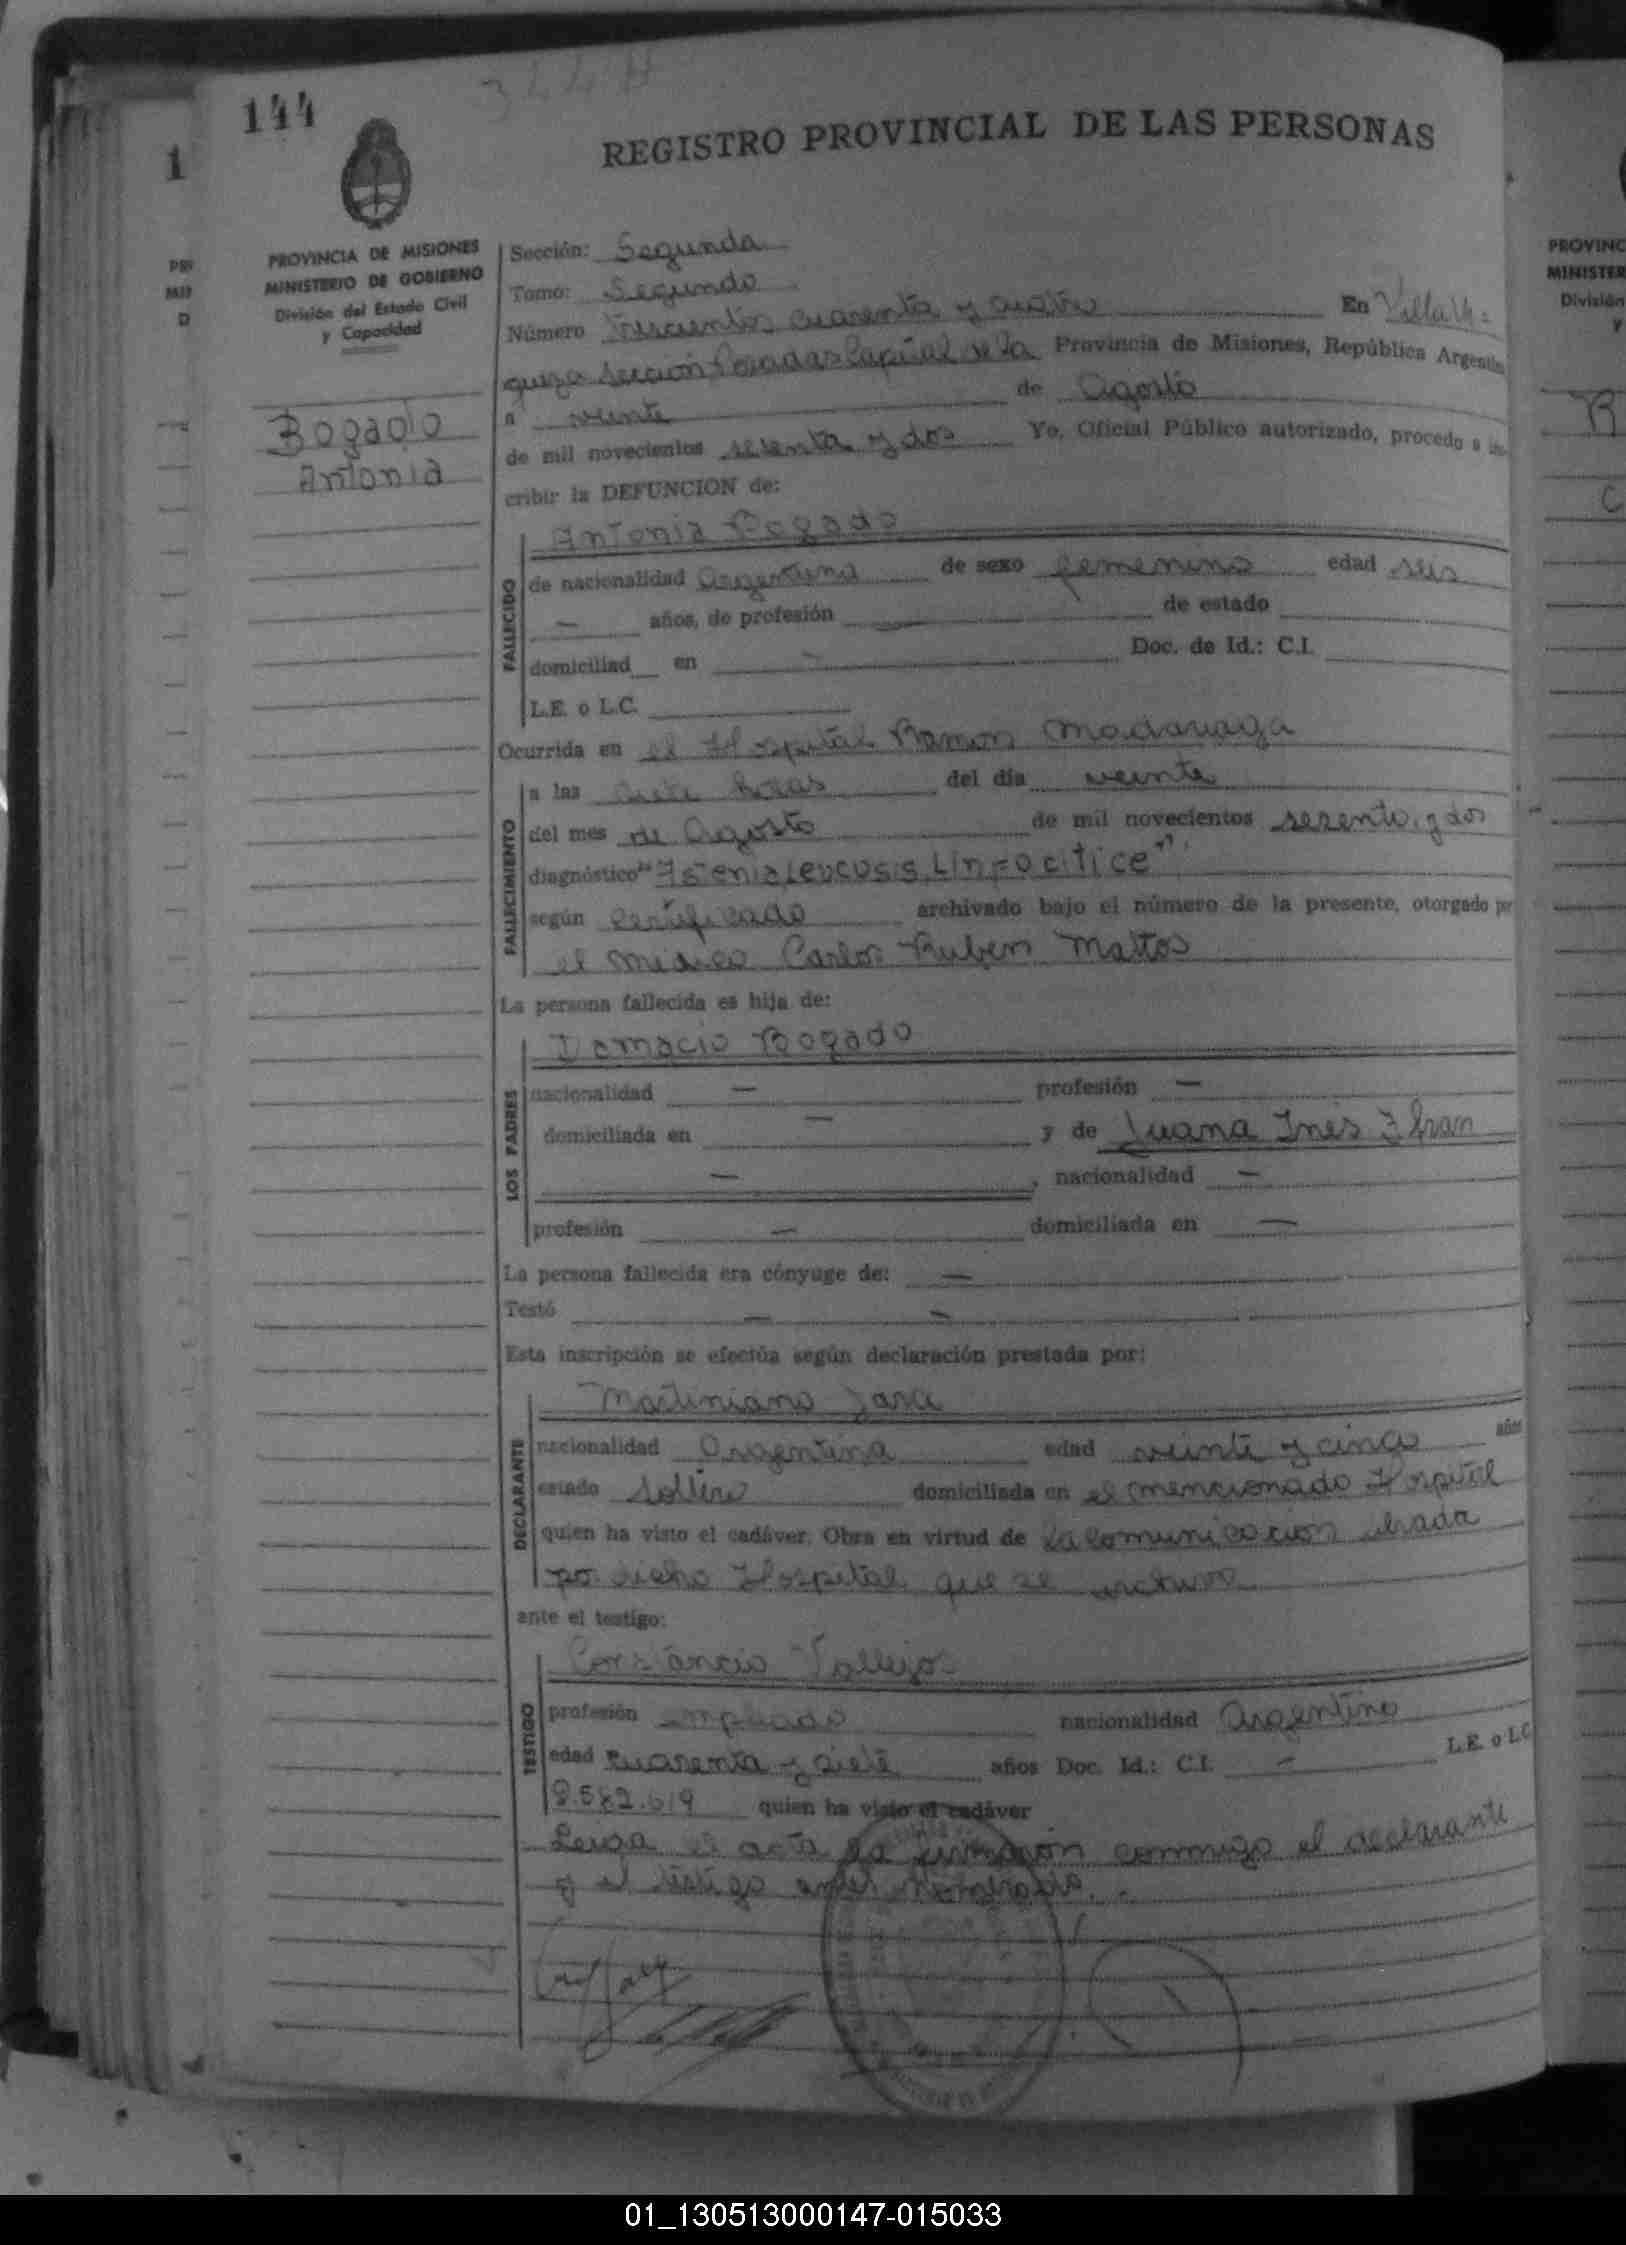 144
344
REGISTRO PROVINCIAL DE LAS PERSONAS
PROVINCIA DE MISIONES
MINISTERIO DE GOBIERNO
División del Estado Civil
y Capacidad
Bogado
Antonia
Sección: Segunda
Tomo: Segundo
Número Trescientos cuarenta y cuatro En Villa Ur=
quiza sección Posadas Capital de la Provincia de Misiones, República Argentina
a veinte de Agosto
de mil novecientos sesenta y dos Yo, Oficial Público autorizado, procedo a ins-
cribir la DEFUNCION de:
Antonia Bogado
FALLECIDO
de nacionalidad Argentina de sexo femenino edad seis
— años, de profesión — de estado
domiciliad en — Doc. de Id.: C.I.
L.E. o L.C.
Ocurrida en el Hospital Ramon Madariaga
FALLECIMIENTO
a las siete horas del día veinte
del mes de Agosto de mil novecientos sesenta y dos
diagnóstico "Astenia Leucosis Linfocitice"
según certificado archivado bajo el número de la presente, otorgado por
el médico Carlos Ruben Mattos
La persona fallecida es hija de:
LOS PADRES
Damacio Bogado
nacionalidad — profesión —
domiciliada en — y de Juana Ines Ifran
— , nacionalidad —
profesión — domiciliada en —
La persona fallecida era cónyuge de: —
Testó — —
Esta inscripción se efectúa según declaración prestada por:
DECLARANTE
Martiniano Jara
nacionalidad Argentina edad veinte y cinco años
estado soltero domiciliada en el mencionado Hospital
quien ha visto el cadáver. Obra en virtud de la comunicacion librada
por dicho Hospital que se archiva
ante el testigo:
TESTIGO
Constancio Vallejos
profesión empleado nacionalidad Argentino
edad cuarenta y siete años Doc. Id.: C.I. — L.E. o L.C.
8.582.619 quien ha visto el cadáver
Leida el acta la firmaron conmigo el declarante
y el testigo antes nombrado.
PROVINC
MINISTER
División
y
01_130513000147-015033